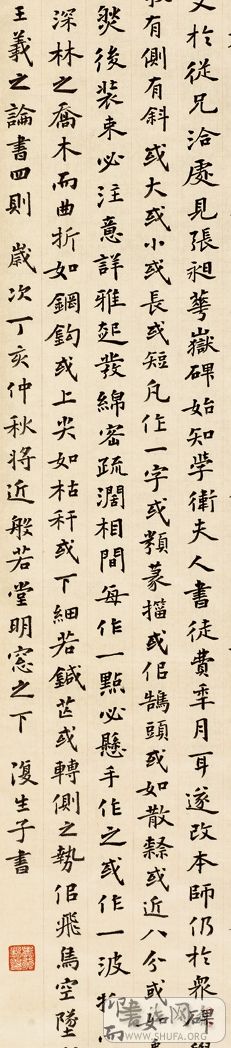 又於從兄洽處見張昶華嶽碑始知學衛夫人書徒費年月耳遂改本師仍於衆碑學
有側有斜或大或小或長或短凡作一字或類篆籀或似鵠頭或如散隸或近八分或如
然後裝束必注意詳雅起發綿密疏濶相間每作一點必懸手作之或作一波
深林之喬木而曲折如鋼鈎或上尖如枯秆或下細若鍼芒或轉側之勢似飛鳥空墜
王羲之論書四則 歲次丁亥仲秋將近般若堂明窓之下 復生子書
書法网
WWW.SHUFA.ORG